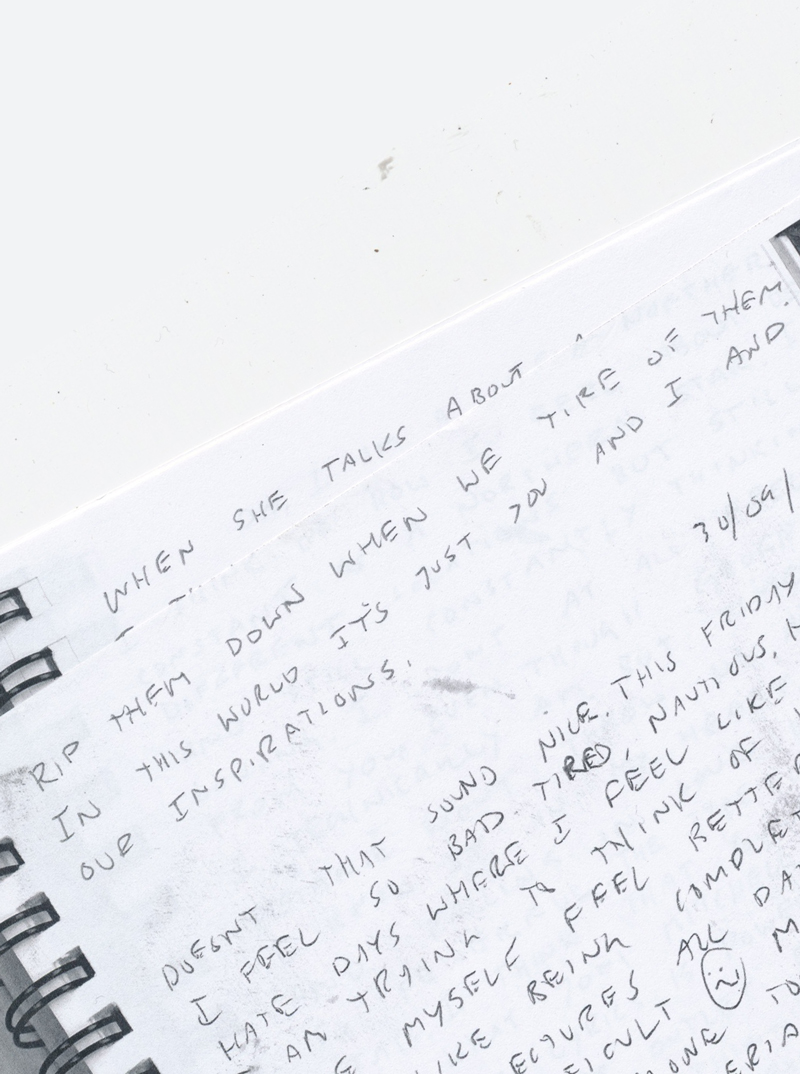 WHEN SHE TALKS ABOUT
RIP THEM DOWN WHEN WE TIRE OF THEM.
IN THIS WORLD IT'S JUST YOU AND I AND
OUR INSPIRATIONS.
30/09/
DOESNT THAT SOUND NICE. THIS FRIDAY
I FEEL SO BAD. TIRED, NAUTIOUS,
HATE DAYS WHERE I FEEL LIKE
AM TRYING TO THINK OF
MYSELF FEEL BETTER
LIKE BEING COMPLET
ECTURES ALL DA
FICULT M
HONE TO
ERIA